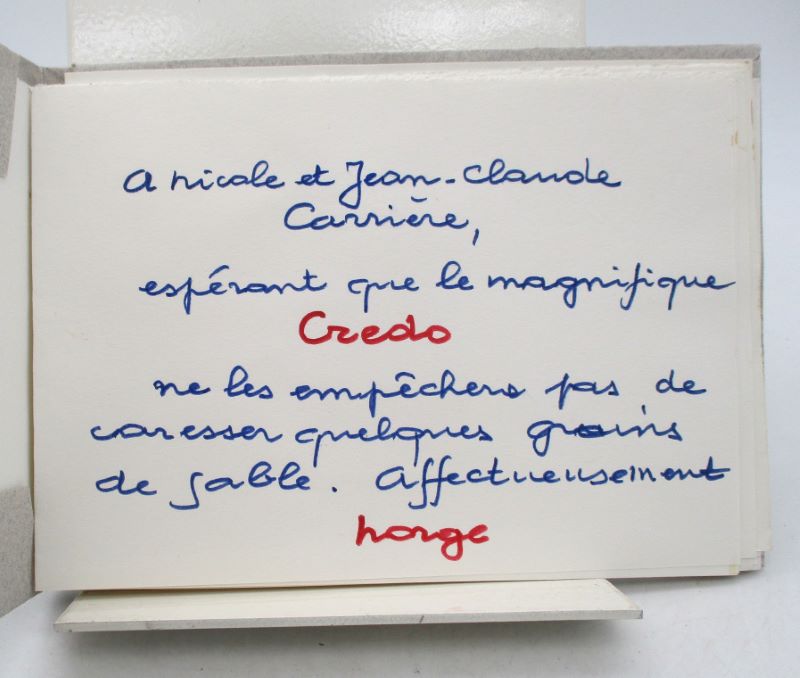 A nicole et Jean-Claude
Carrière,
espérant que le magnifique
Credo
ne les empêchera pas de
caresser quelques grains
de sable. Affectueusement
horge